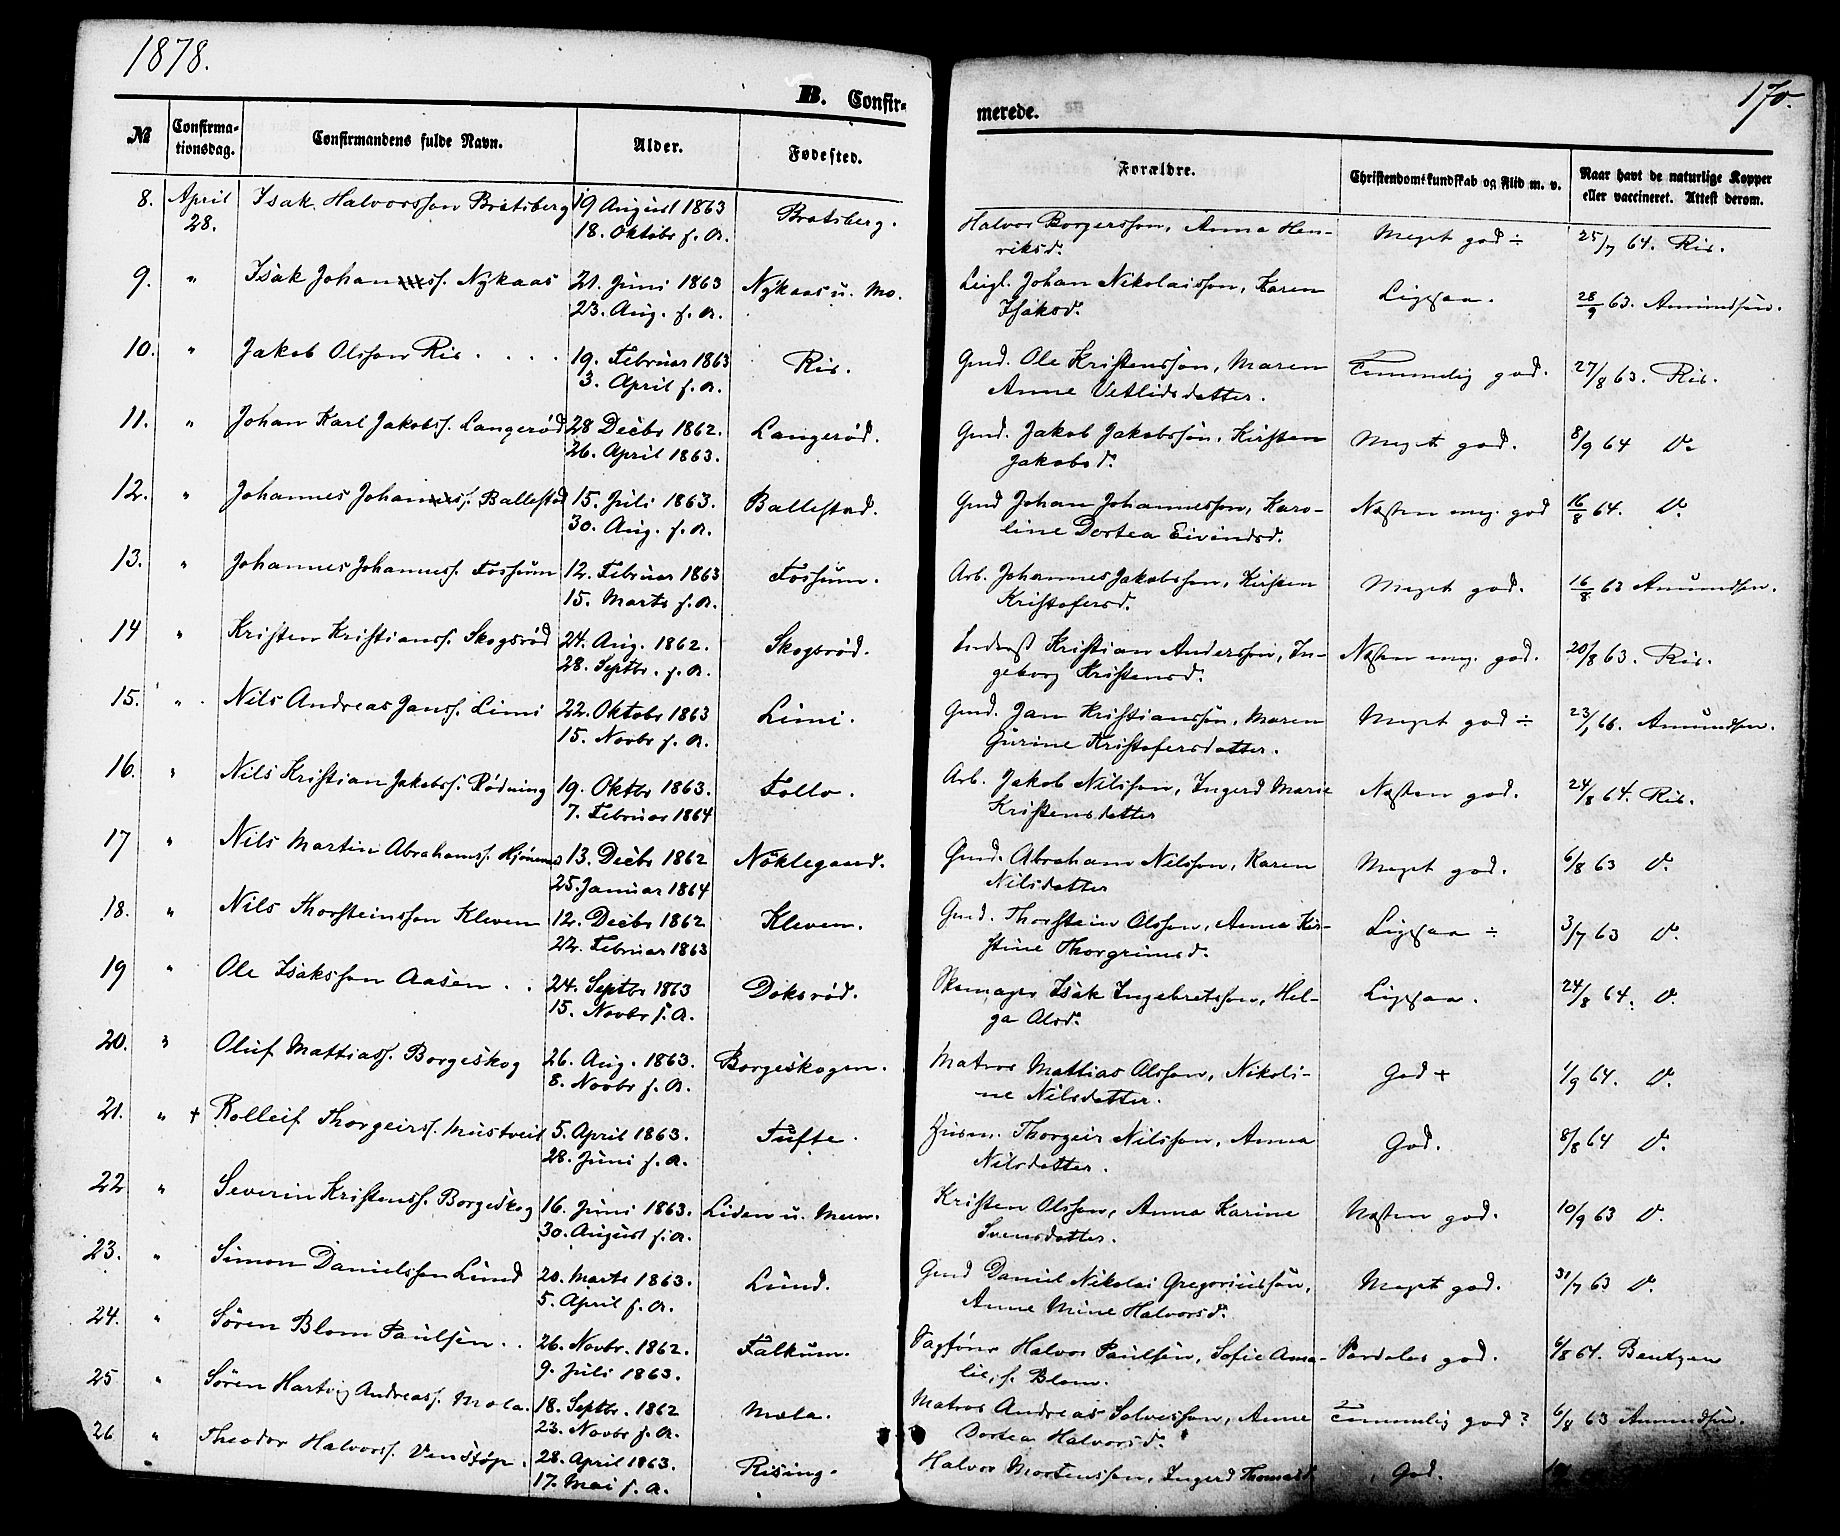 1878.
170.
B. Confir-
merede.
№
Confirma-
tionsdag.
Confirmandens fulde Navn.
Alder.
Fødested.
Forældre.
Christendomskundskab og Flid m. v.
Naar havt de naturlige Kopper
eller vaccineret. Attest derom.
8. April Isak Halvorssøn Bratsberg 19 August 1863 Bratsberg. Halvor Borgerssøn, Anna Hen- Meget god ÷ 25/7 64. Ris.
28. 18. Oktobr s. A. riksd.
9. " Isak Johans. Nykaas 21. Juni 1863 Nykaas u. Mo. Leigl. Johan Nikolaissøn, Karen Ligesaa. 28/9 63. Amundsen.
23. Aug. s. A. Isaksd.
10. " Jakob Olssøn Ris . . . . 19. Februar 1863 Ris. Gmd. Ole Kristenssøn, Maren Temmelig god. 27/8 63. Ris.
3. April s. A. Anne Vetlidsdatter.
11. " Johan Karl Jakobss. Langerød 28 Decbr 1862. Langerød. Gmd. Jakob Jakobssøn, Kirsten Meget god. 8/9 64 D.
26. April 1863. Jakobsd.
12. " Johannes Johans. Ballestad 15. Juli 1863. Ballestad. Gmd Johan Johannessøn, Karo- Næsten meg. god 16/8 64. D.
30. Aug. s. A. line Dortea Eivindsd.
13. " Johannes Johanness. Fossum 12. Februar 1863 Fossum. Arb. Johannes Jakobssøn, Kirsten Meget god. 16/8 63 Amundsen.
15. Marts s. A. Kristofersd.
14 " Kristen Kristianss. Skogsrød 24. Aug. 1862. Skogsrød. Inderst Kristian Anderssøn, In- Næsten meg. god. 20/8 63. Ris.
28. Septbr. s. A. geborg Kristensd.
15. " Nils Andreas Janss. Limi 22. Oktobr 1863 Limi. Gmd. Jan Kristianssøn, Maren Meget god ÷ 23/1 66. Amundsen.
15. Novbr s. A. Gurine Kristofersdatter.
16. " Nils Kristian Jakobss. Rødning 19. Oktbr 1863. Follo. Arb. Jakob Nilssøn, Ingerd Marie Næsten god. 24/8 64. Ris.
7. Februar 1864 Kristensdatter
17 " Nils Martin Abrahamss. Hjønnes 13. Decbr 1862 Nøklegaard. Gmd. Abraham Nilssøn, Karen Meget god. 6/8 63 D.
25. Januar 1864 Nilsdatter
18. " Nils Thorsteinssøn Kleven 12. Decbr 1862 Kleven. Gmd. Thorstein Olssøn, Anna Kir- Ligesaa ÷ 3/7 63 D.
22. Februar 1863 stine Thorgrimsd.
19 " Ole Isakssøn Aasen . . 24. Septbr 1863 Doksrød. Skomager Isak Ingebretssøn, Hel- Ligesaa. 24/8 64. D.
15. Novbr s. A. ga Olsd.
20. " Oluf Mattiass. Borgeskog 26. Aug. 1863. Borgeskogen. Matros Mattias Olssøn, Nikoli- God + 1/9 64. D.
8. Novbr s. A. ne Nilsdatter.
21. " + Rolleif Thorgeirss. Mustveit 5. April 1863. Tufte. Husm. Thorgeir Nilssøn, Anna God. 8/8 64 D.
28. Juni s. A. Nilsdatter.
22 " Severin Kristenss. Borgeskog 16. Juni 1863. Liden u. Meen. Kristen Olssøn, Anna Karine Næsten god. 10/9 63 D.
30. August s. A. Svensdatter.
23. " Simon Danielssøn Lund 20. Marts 1863. Lund. Gmd Daniel Nikolai Gregoriussøn, Meget god. 31/7 63 D.
5. April s. A. Anne Mine Halvorsd.
24. " Søren Blom Paulsen . . 26. Novbr. 1862. Falkum. Fogfører Halvor Paulsen, Sofie Ama- Særdeles god. 6/8 64. Bentzen
9. Juli 1863. lie, f. Blom.
25 " Søren Hartvig Andreass. Mæla. 18. Septbr. 1862 Mæla. Matros Andreas Solvessøn, Anne Temmelig god? 6/8 63 Amundsen.
23. Novbr s. A. Dortea Halvorsd.
26 " Theodor Halvorss. Venstøp. 28. April 1863. Rising. Halvor Mortenssøn, Ingerd Thomasd. God.
17. Mai s. A.